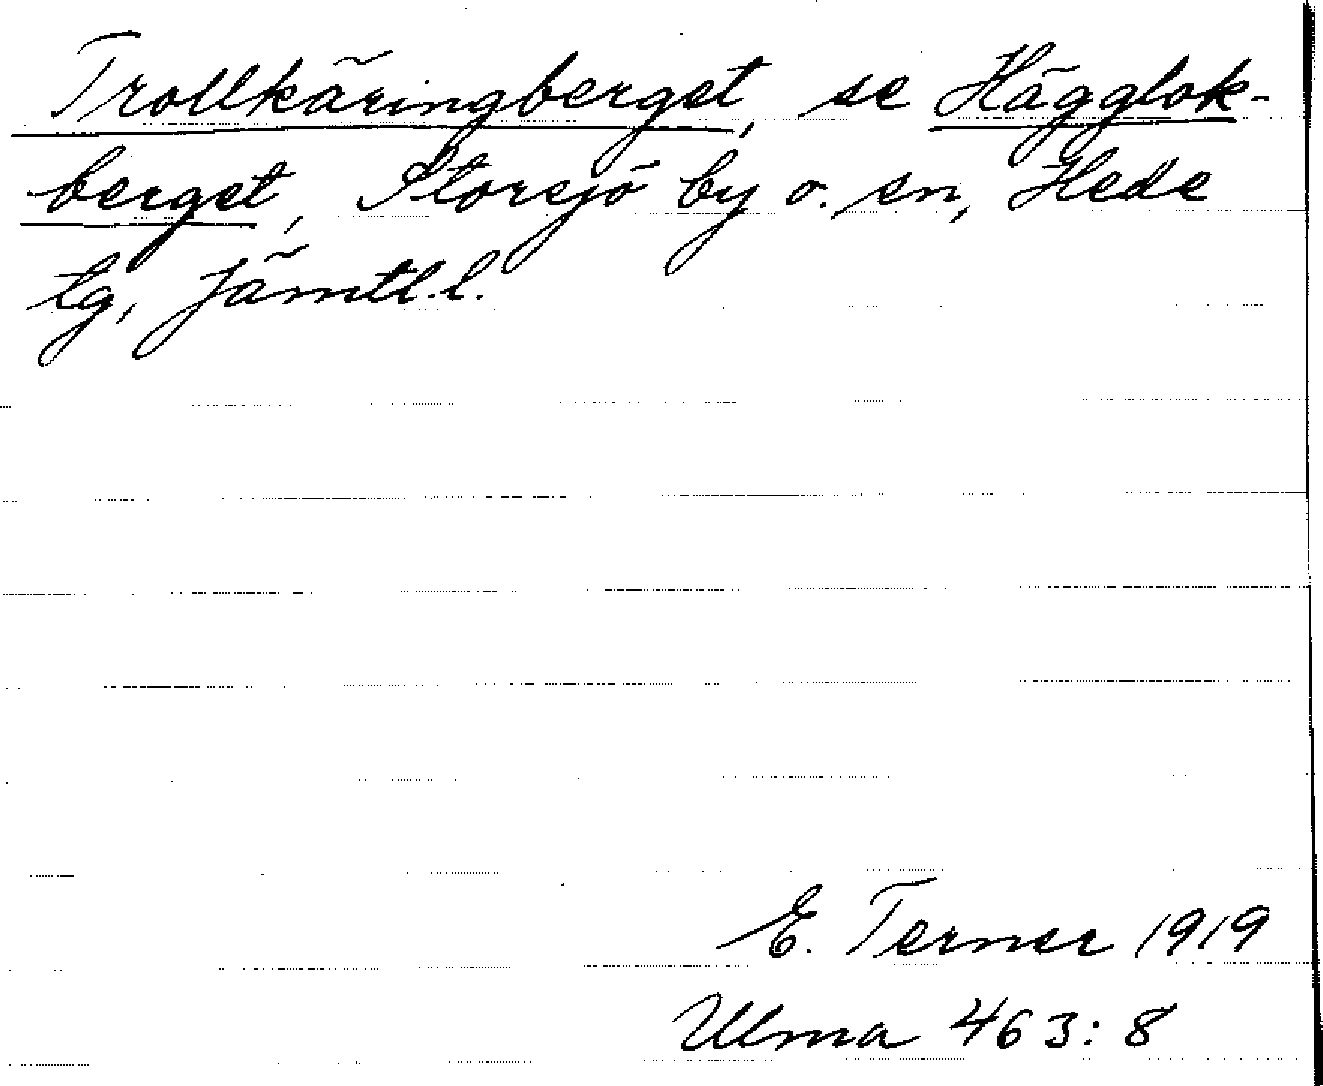 Trollkäringberget, se Hägglok-
berget, Storsjö by o. sn, Hede
tg, Jämtl.l.
E. Terner 1919
Ulma 463:8